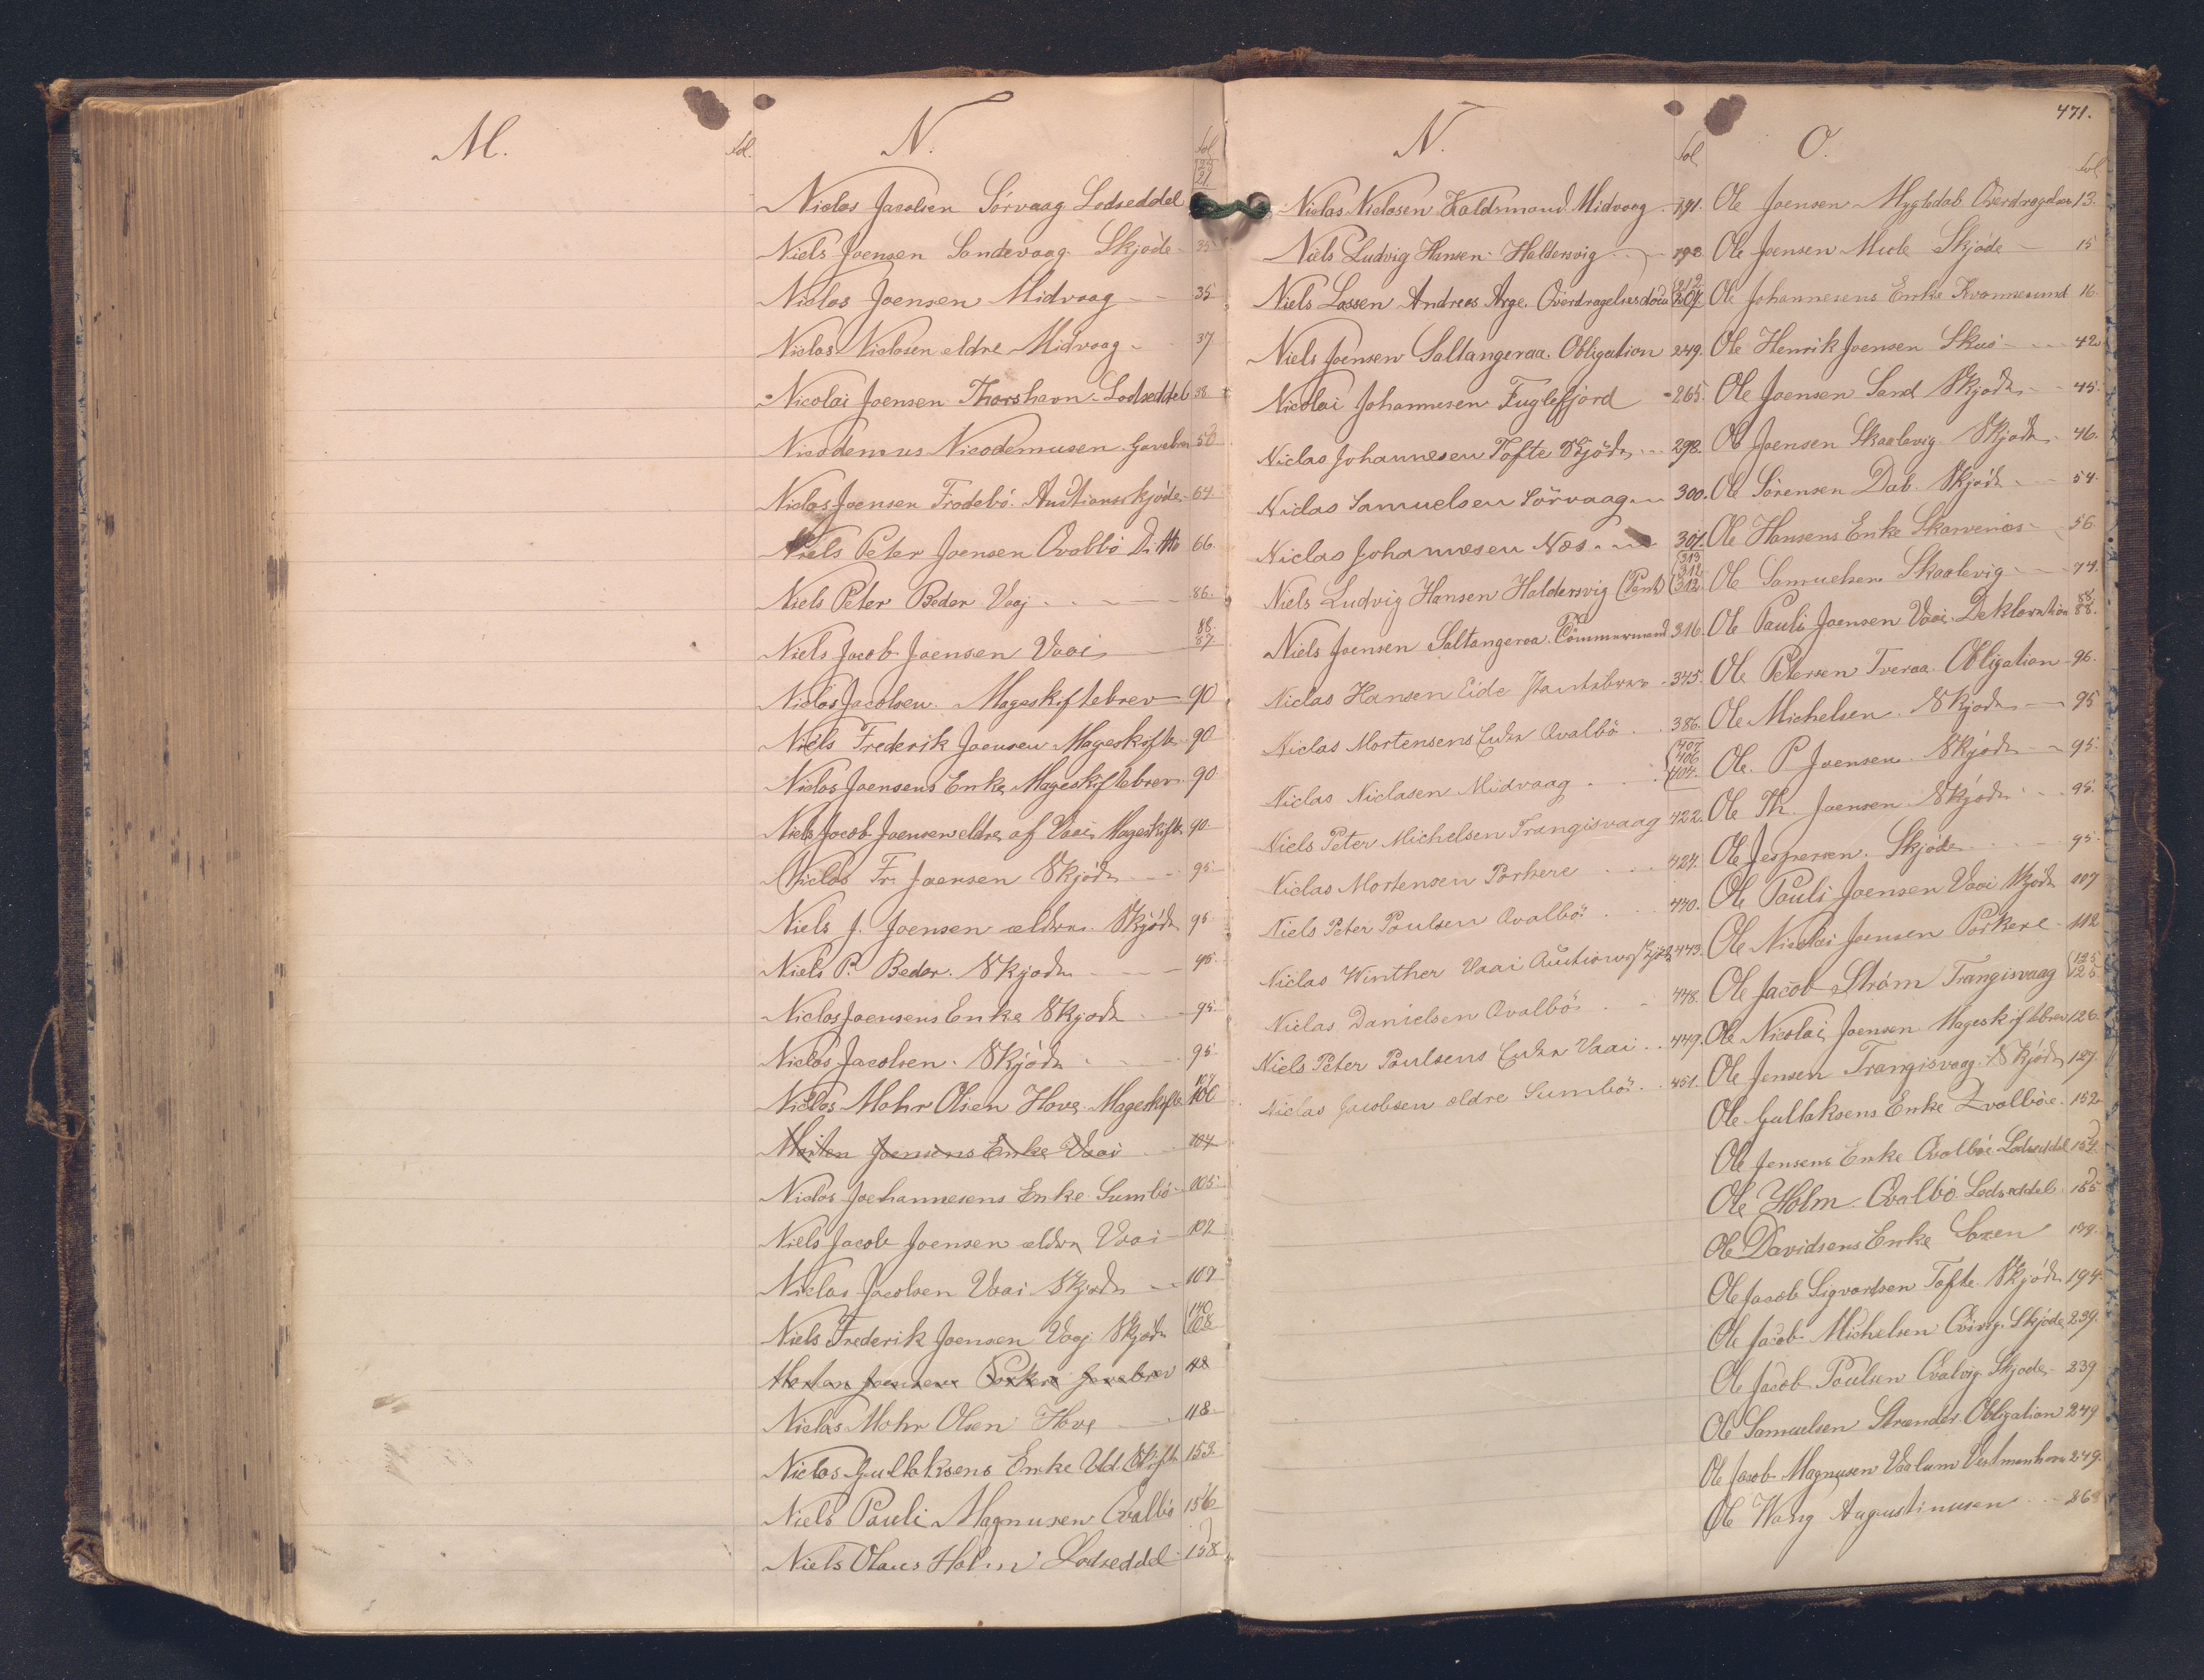 M.
fol.
N.
fol
25
21
Niclas Jacobsen Sörvaag Lodseddel
Niels Joensen Sandevaag Skjöde 35
Niclas Joensen Midvaag 35
Niclas Niclasen ældre Midvaag 37
Nicolai Joensen Thorshavn Lodseddel 38
Nicodemus Nicodemusen Gavebrev 50
Niclas Joensen Frodebö. Auctionsskjöde 64
Niels Peter Joensen Qvalbö Ditto 66.
Niels Peter Beder Vaaj 86.
Niels Jacob Joensen Vaai 88. 87
Niclas Jacobsen. Mageskiftebrev 90
Niels Frederik Joensen Mageskifte 90
Niclas Joensens Enke Mageskiftebrev. 90
Niels Jacob Joensen ældre af Vaai Mageskifte 90
Niclas Fr. Joensen Skjöde 95
Niels J. Joensen ældre. Skjöde 95
Niels P. Beder. Skjöde 95.
Niclas Joensens Enke Skjöde 95
Niclas Jacobsen. Skjöde 95
Niclas Mohr Olsen Hove Mageskifte 107 100
Morten Joensens Enke Vaai 104
Niclas Joehannesens Enke Sumbö 105
Niels Jacob Joensen ældre Vaai 107
Niclas Jacobsen Vaai Skjöde 107
Niels Frederik Joensen Vaaj Skjöde 140 108
Morten Joensen Porkere Gavebrev 118
Niclas Mohr Olsen Hove 118
Niclas Gullaksens Enke Ud. Skifte 153.
Niels Pauli Magnusen Qvalbö 156
Niels Olaus Holm Lodseddel 158
N.
fol
Niclas Niclasen Kaldsmand Midvaag 191.
Niels Ludvig Hansen Haldersvig 198
Niels Lassen Andreas Arge. Overdragelsesdocu 212 207.
Niels Joensen Saltangeraa. Obligation 249.
Nicolai Johannesen Fuglefjord 265.
Niclas Johannesen Tofte Skjöde 298.
Niclas Samuelsen Sörvaag 300.
Niclas Johannesen Næs 301.
Niels Ludvig Hansen Haldersvig (Pant) 313 312 312.
Niels Joensen Saltangeraa. Tömmermand 316.
Niclas Hansen Eide Pantebrev 345.
Niclas Mortensens Enke Qvalbö 386.
Niclas Niclasen Midvaag 407 406 404.
Niels Peter Michelsen Trangisvaag 422.
Niclas Mortensen Porkere 424.
Niels Peter Poulsen Qvalbö 440.
Niclas Winther Vaai Auctionsskjöde 443.
Niclas Danielsen Qvalbö 448.
Niels Peter Poulsens Enke Vaai 449.
Niclas Jacobsen ældre Sumbö 451.
471.
O.
fol
Ole Joensen Mygledal Overdragelse 13.
Ole Joensen Mule Skjöde 15
Ole Johannesens Enke Kvannesund 16.
Ole Henrik Joensen Skuö 42
Ole Joensen Sand Skjöde 45.
Ole Joensen Skaalevig Skjöde 46.
Ole Sörensen Dal. Skjöde 54.
Ole Hansens Enke Skarvenæs 56
Ole Samuelsen Skaalevig 74.
Ole Pauli Joensen Vaai. Deklaration 88 88.
Ole Petersen Tveraa. Obligation 96.
Ole Michelsen. Skjöde 95
Ole. P. Joensen. Skjöde 95.
Ole Th. Joensen Skjöde 95.
Ole Jespersen. Skjöde 95.
Ole Pauli Joensen Vaai Skjöde 107
Ole Nicolai Joensen Porkere 112
Ole Jacob Ström Trangisvaag 125 125
Ole Nicolai Joensen Mageskiftebrev 126
Ole Jensen Trangisvaag. Skjöde 127.
Ole Gullaksens Enke Qvalböe. 152
Ole Jensens Enke Qvalböe Lodseddel 154.
Ole Holm Qvalbö Lodseddel. 155
Ole Davidsens Enke Saxen 159.
Ole Jacob Sigvardsen Tofte. Skjöde 194.
Ole Jacob Michelsen Qvivig. Skjöde 239.
Ole Jacob Poulsen Qvalvig Skjöde 239
Ole Samuelsen Strænder Obligation 249
Ole Jacob Magnusen Vaalum Vestmanhavn 249.
Ole Wang Augustinusen 26